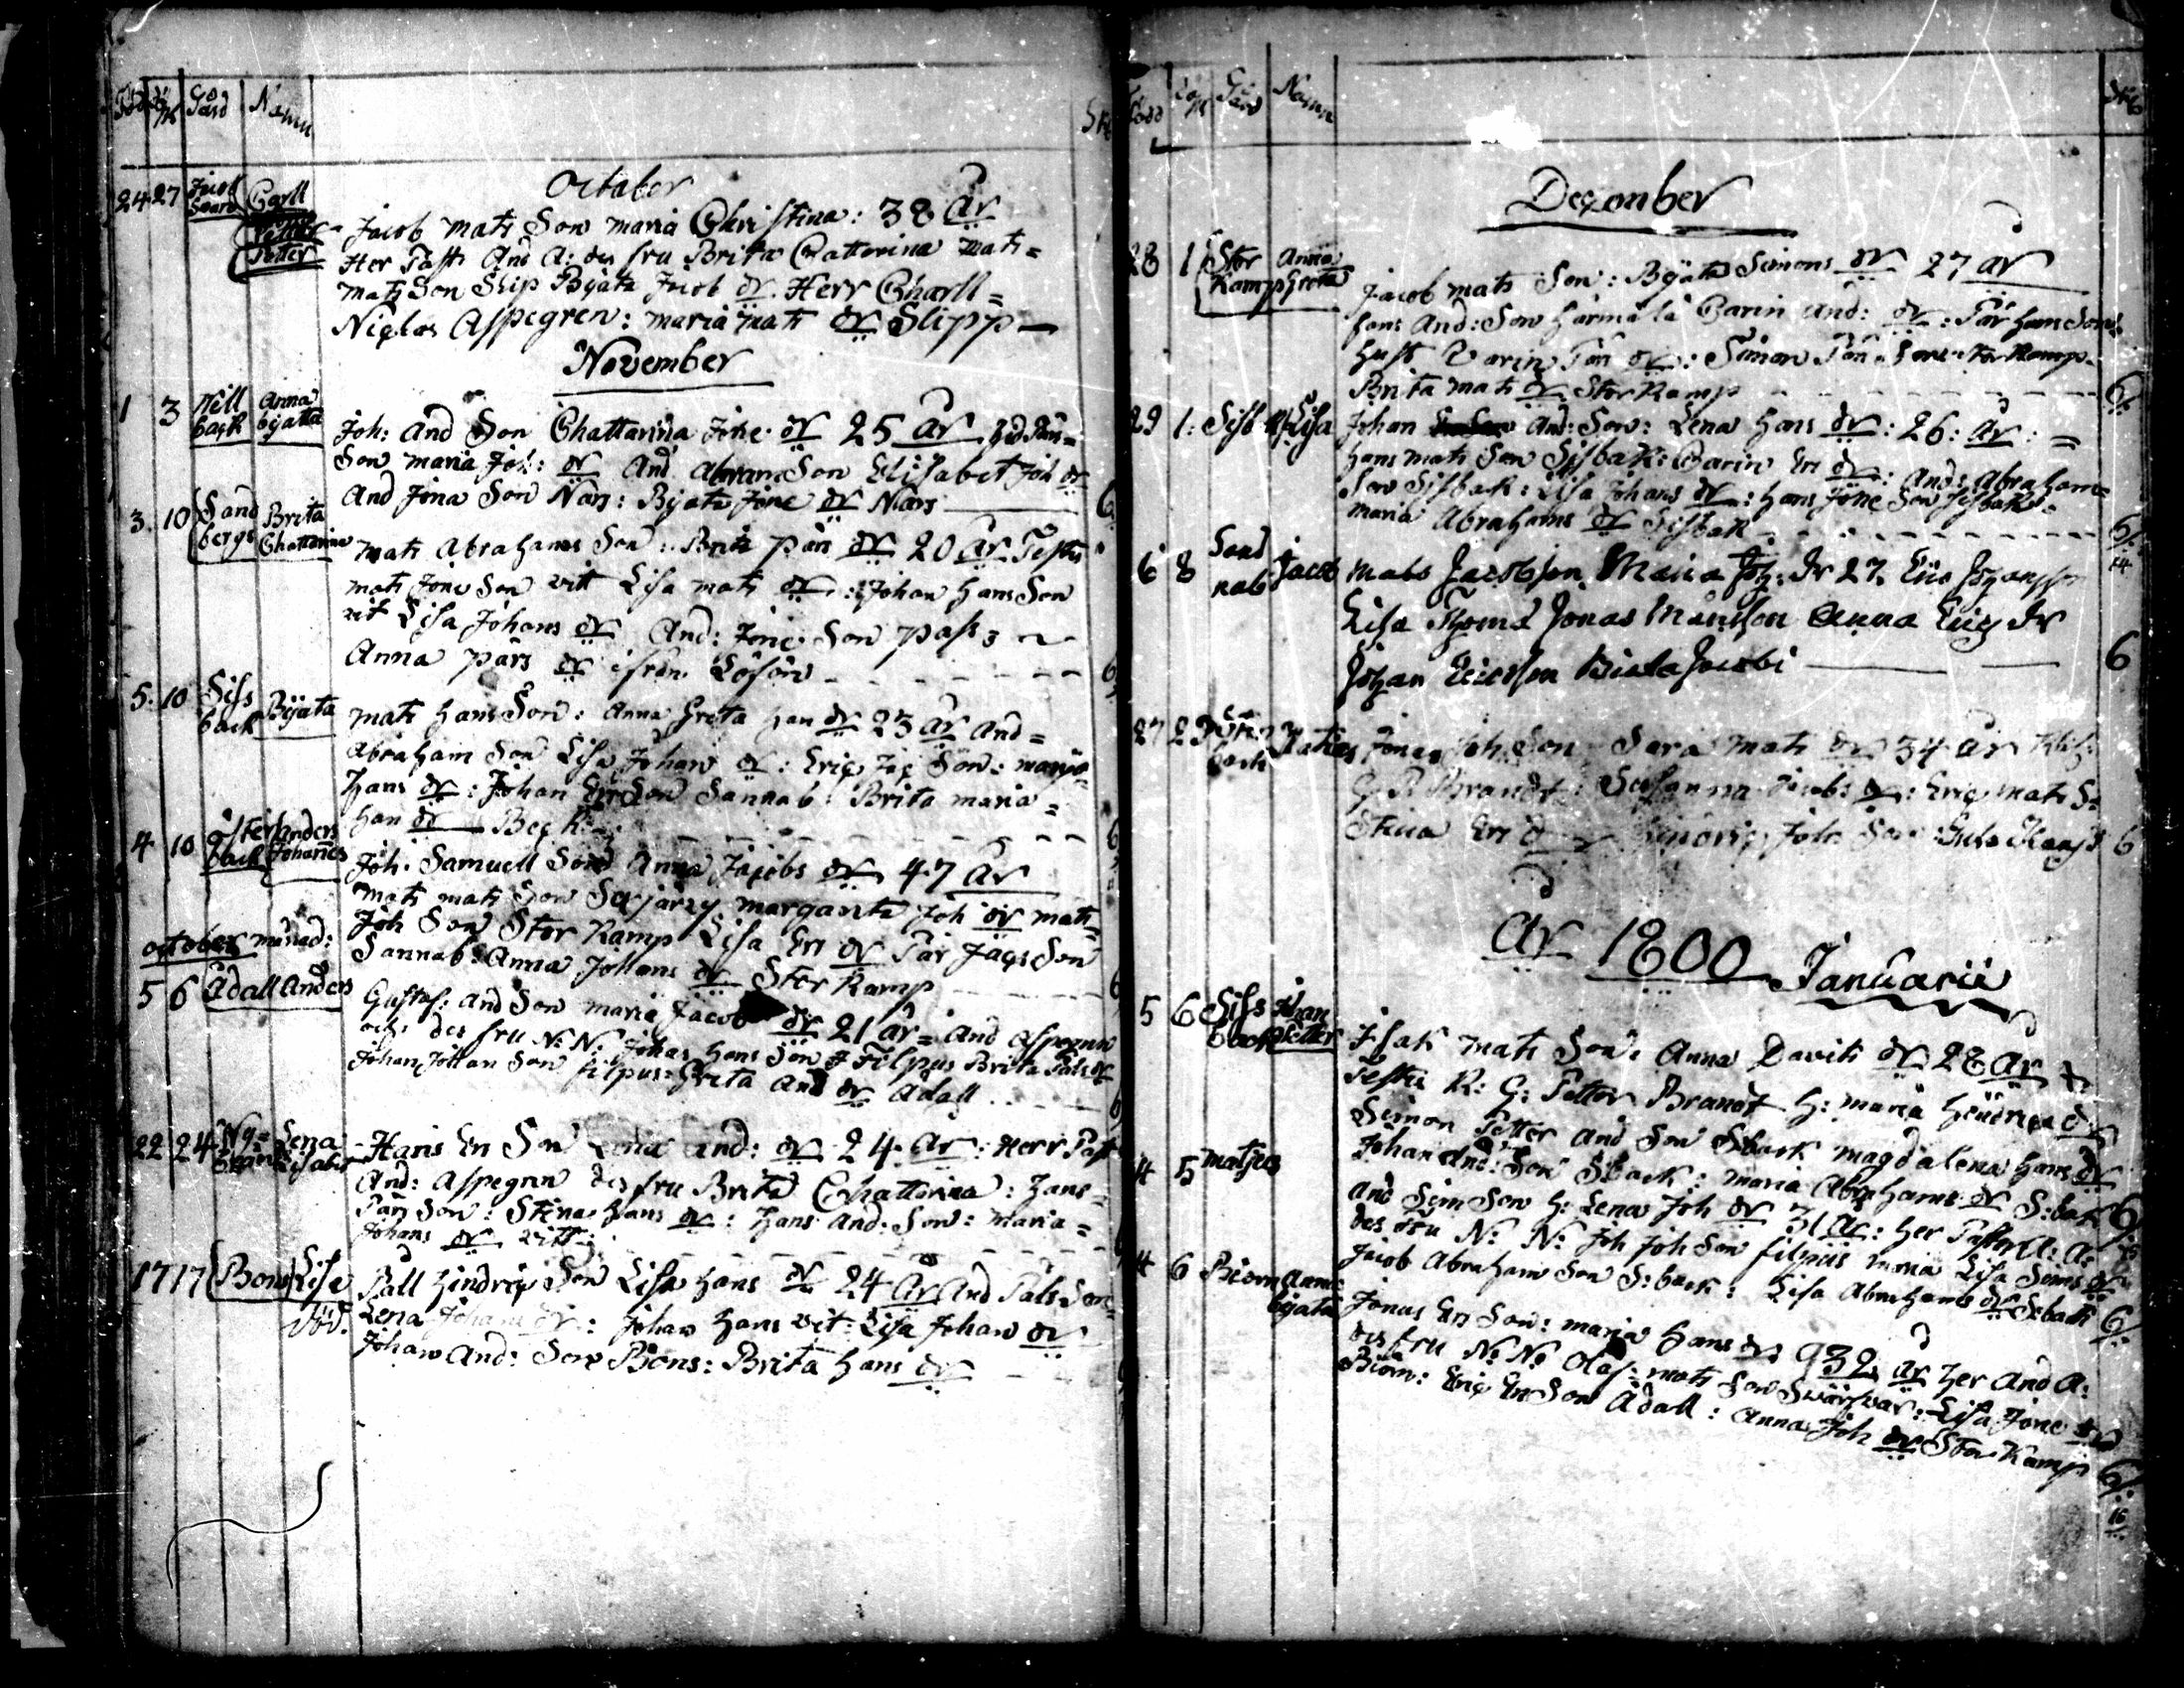 Född Döpt Gård Namn Skl
October
24 27 Jacob Svars Carll Petter
Jacob mats Son maria Christina: 38 år
Her Past And A: des fru Brita Chattarina mats=
mats Son Slip Bÿata Jacob dr. Herr Charll=
Niclas Aspegren: maria mats dr Slipp
November
1 3 Nill back Anna bÿatta
Joh: And Son Chattarina Jone dr 25 år
Son maria Joh: dr And Abram Son Elisabet Joh dr
And Jona Son Nars: Bÿata Jone dr Nars 6
3. 10 Sand bergs Brita Chattarina
mats Abrahams Son: Brita pärs dr 20 år Testes
mats Jone Son vitt Lisa mats dr: Johan Hans Son
vit Lisa Johans dr And: Jone Son pass
Anna pärs dr ifrån Lösön 6
5. 10 Siss back Bÿata
mats Hans Son: Anna Greta Han dr 23 år And=
Abraham Son Lisa Johans dr: Eric Jac Son: maria
Hans dr: Johan Ers Son Sannab: Brita maria=
Han dr Beck 6
4. 10 öster back Anders Johanes
Joh: Samuell Son Anna Jacobs dr 47 år
mats mats Son margareta Joh dr mats
Joh Son Stor Kamp Lisa Ers dr Pär Jacs Son
Sannab: Anna Johans dr Stor Kamp 6
october månad:
5 6 Ådall Anders
Gustaf: And Son maria Jacob dr 21 år = And Aspegren
och des fru N: N: Johan Hans Son Filpus Brita Påls dr
Johan Johan Son filpus: Greta And dr Ådall 6
22 24 Ny= Lena Lisabet
Hans Ers Son Lena And: dr 24 år: Herr Past
And: Aspegren des fru Brita Chattarina: Hans=
Pärs Son: Stina Hans dr: Hans And: Son: maria=
Johans dr vitt:
17 17 Bons Lisa död.
Påll Hindric Son Lisa Hans dr 24 år And Påls Son=
Lena Johans dr: Johan Hans vit: Lisa Johan dr
Johan And: Son Bons: Brita Hans dr
Född Döpt Gård Namn Skl
December
28 1 Stor Kamp Anna Greta
Jacob mats Son: Bÿata Simons dr 27 år
Hans And: Son Härmälä Carin And: dr: Pär Hans Sons
Hust Carin Pärs dr: Simon Pärs Son Stor Kamp
Brita mats dr Stor Kamp 6
29 1: Sisb Lisa
Johan And: Son: Lena Hans dr: 26: år: =
Hans mats Son Sisbak: Carin Ers dr: And: Abraham=
Son Sisback: Lisa Johans dr: Hans Jone Son Sisbak:
maria Abrahams dr Sisbak 6
14
6 8 Sand nab Jacob
Mats Jacobsson Maria Joh: Dr 27. Eric Johansson
Lisa Thoms Jonas Månsson Anna Eric Dr
Johan Ericsson Biata Jacobi 6
27 29 back Matias
Jonas Joh Son Sara mats dr 34 år
G R Brandt: Susanna Jacobs dr: Eric mats S:
Stina Ers dr Hindric Joh Son 6
år 1800 Januarii
5 6 Siss back Johan Petter
Isak mats Son: Anna Davits dr 28 år
Testes R: G: Petter Brandt H: maria Hendrica dr
Simon Petter And Son Sback magdalena Hans dr
Johan And: Son S:back: maria Abrahams dr S:bak 6
4 5 matjus
And Sim Son H: Lena Joh dr 31 år: Her Pastor A: A:
des fru N: N: Joh Joh Son filpus maria Lisa Sims dr
Jacob Abraham Son S:back: Lisa Abrahams dr Sback 6
4 6 Biörn Anna bÿata
Jonas Ers Son: maria Hans dr 32 år Her And A:
des fru N: N: Olaf: mats Son Svarfvar: Lisa Jone
Biörn: Eric Ers Son Ådall: Anna Joh dr Stor Kamp 6
16